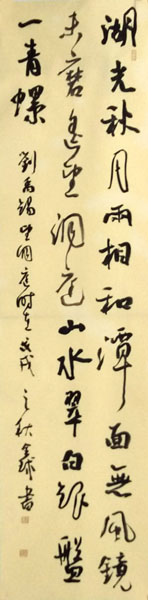 湖光秋月兩相和潭面無風鏡
未磨遙望洞庭山水翠白銀盤
一青螺
劉禹錫望洞庭时在戌之秋書